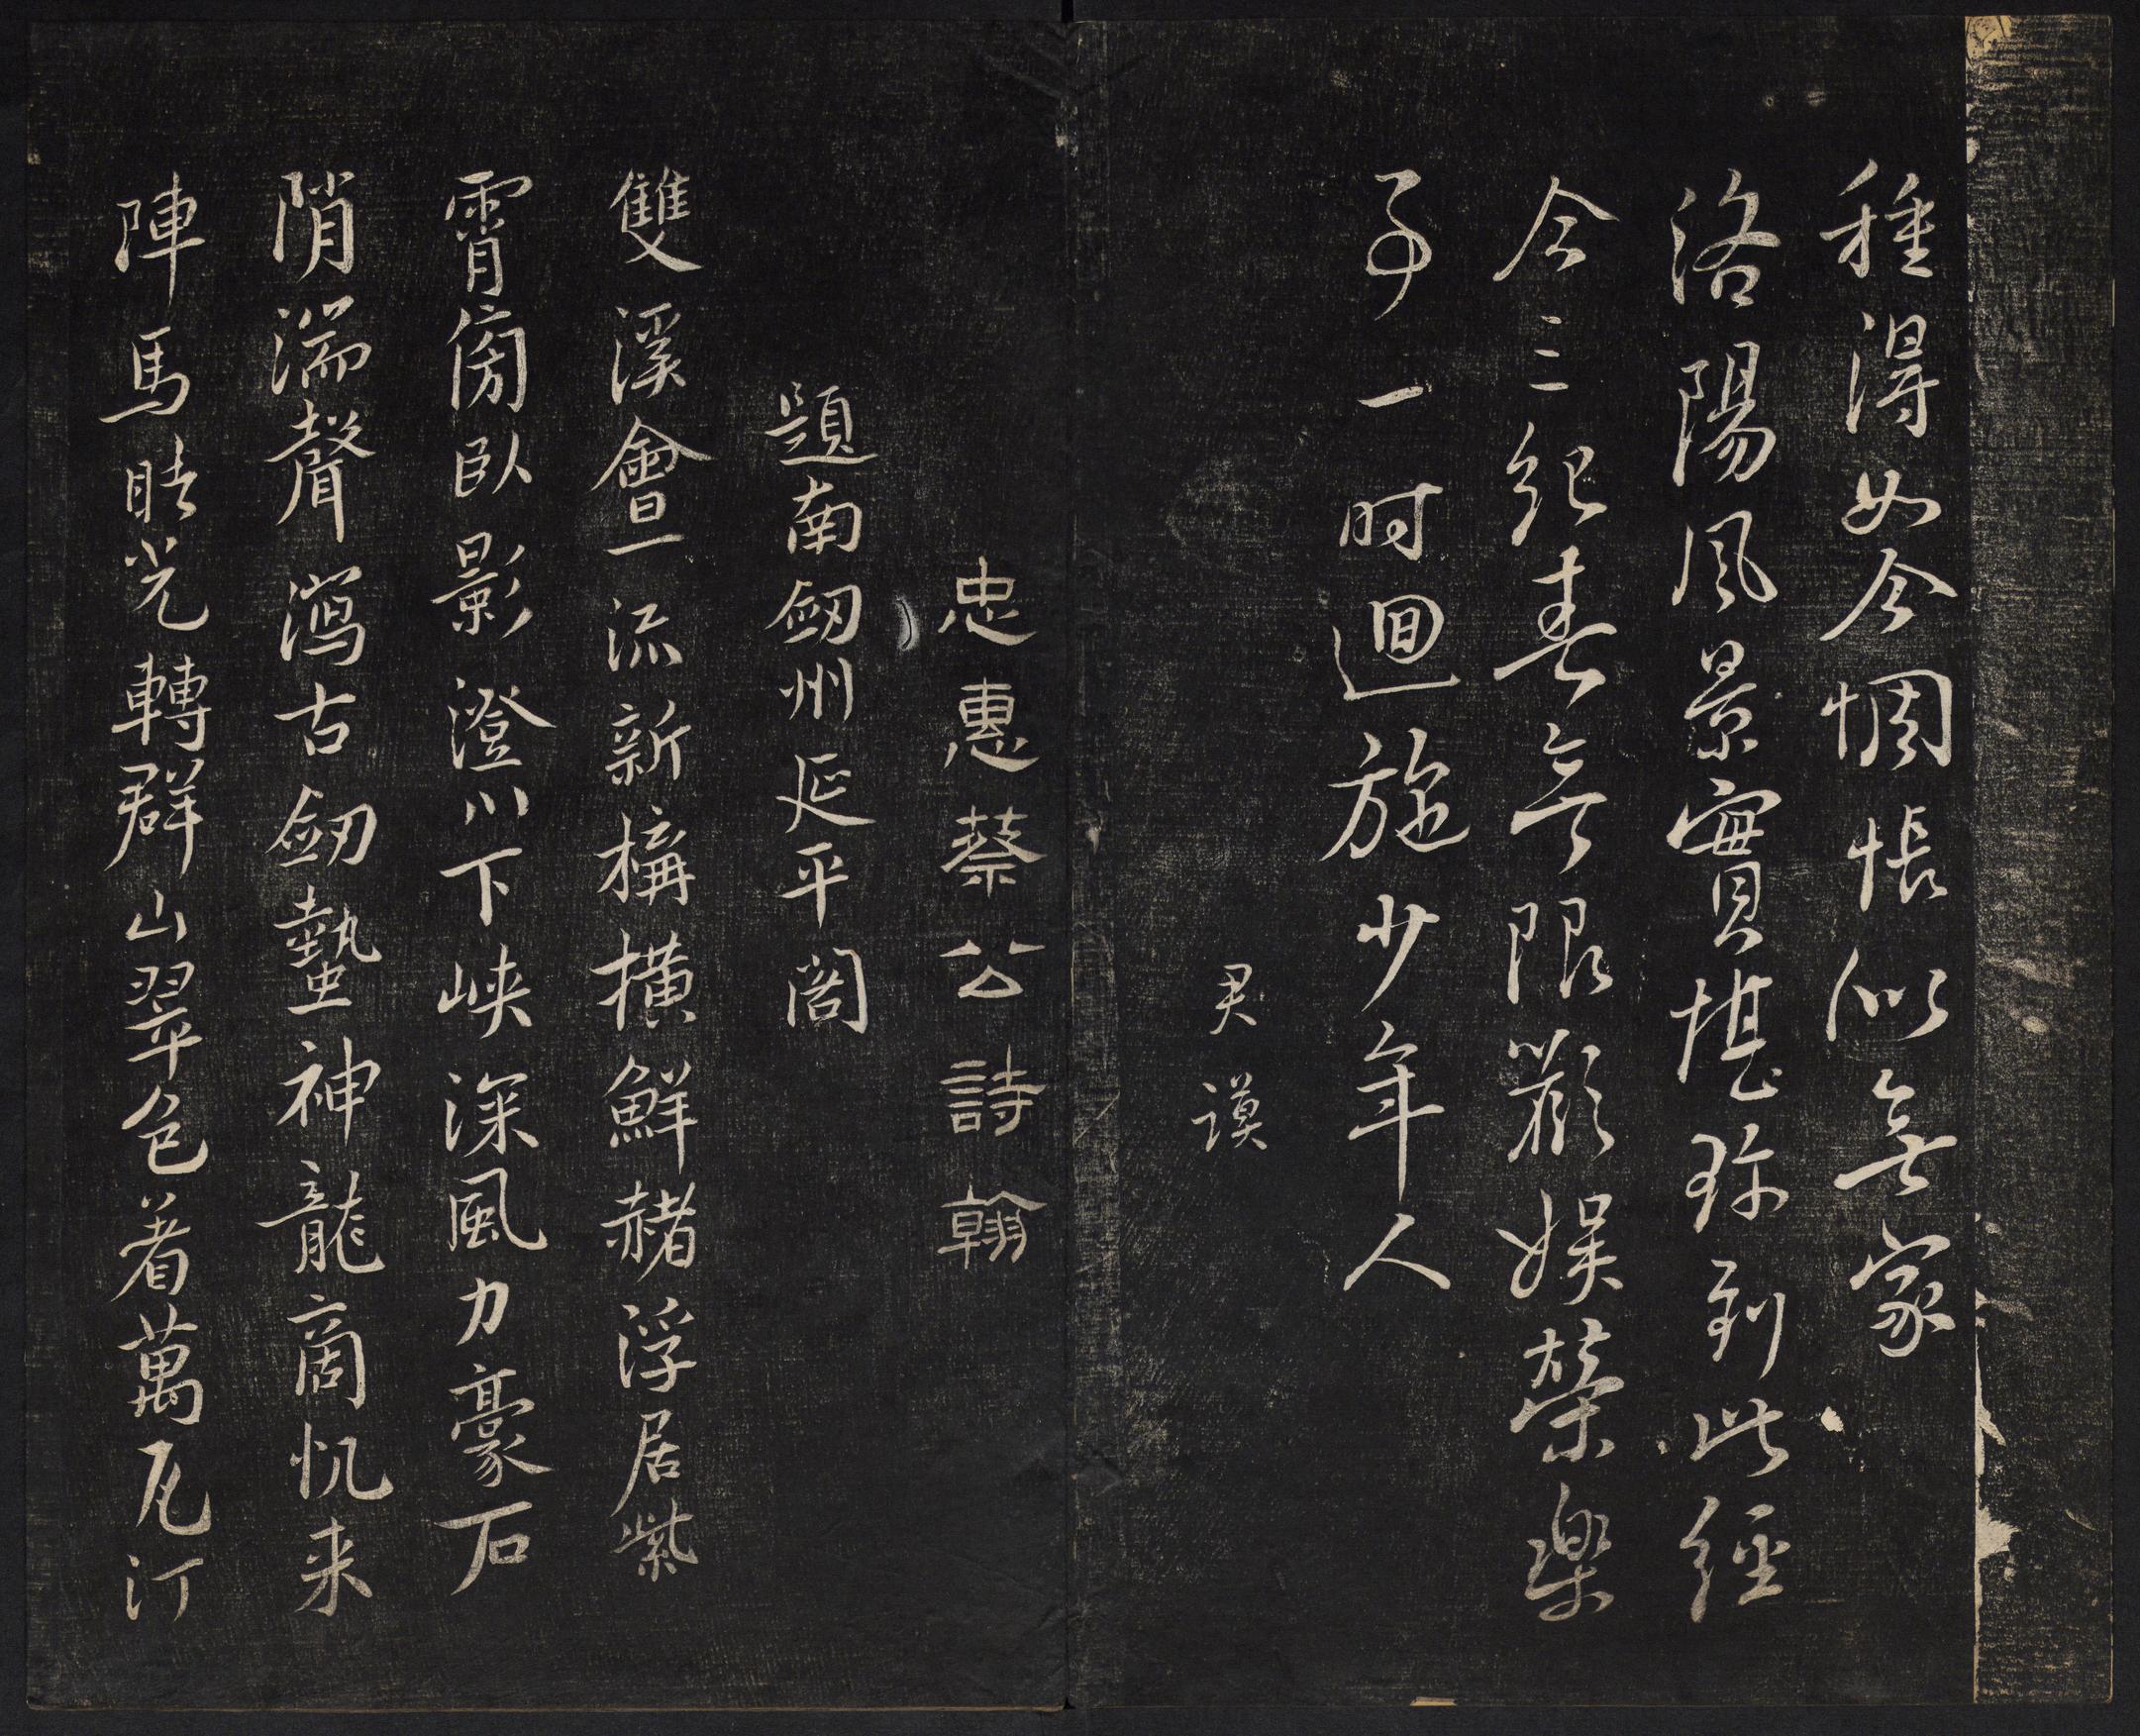 種得如今惆悵似無家
洛陽風景實堪珍到此經
今三紀春無限歡娛榮樂
事一時迴施少年人
君謨
忠惠蔡公詩翰
題南劒州延平閣
雙溪會一流新構橫鮮赭浮居紫
霄傍臥影澄川下峽深風力豪石
陗湍聲瀉古劒蟄神龍商帆来
陣馬晴光轉群山翠色着萬瓦汀